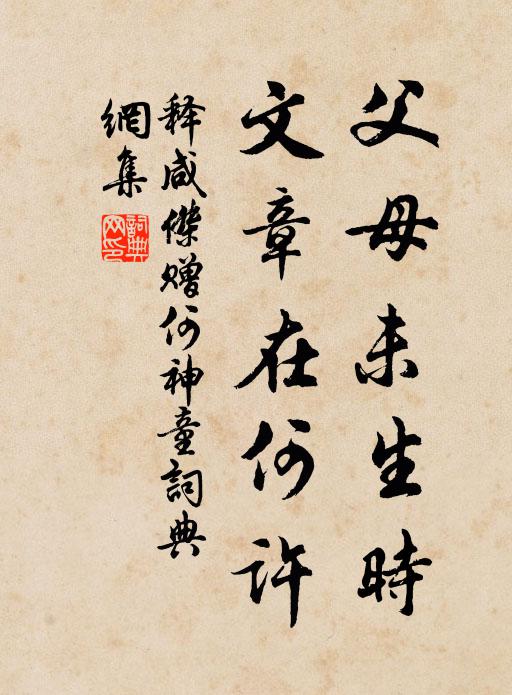 父母未生時
文章在何許
释咸傑赠何神童詞典
網集
詞典網印